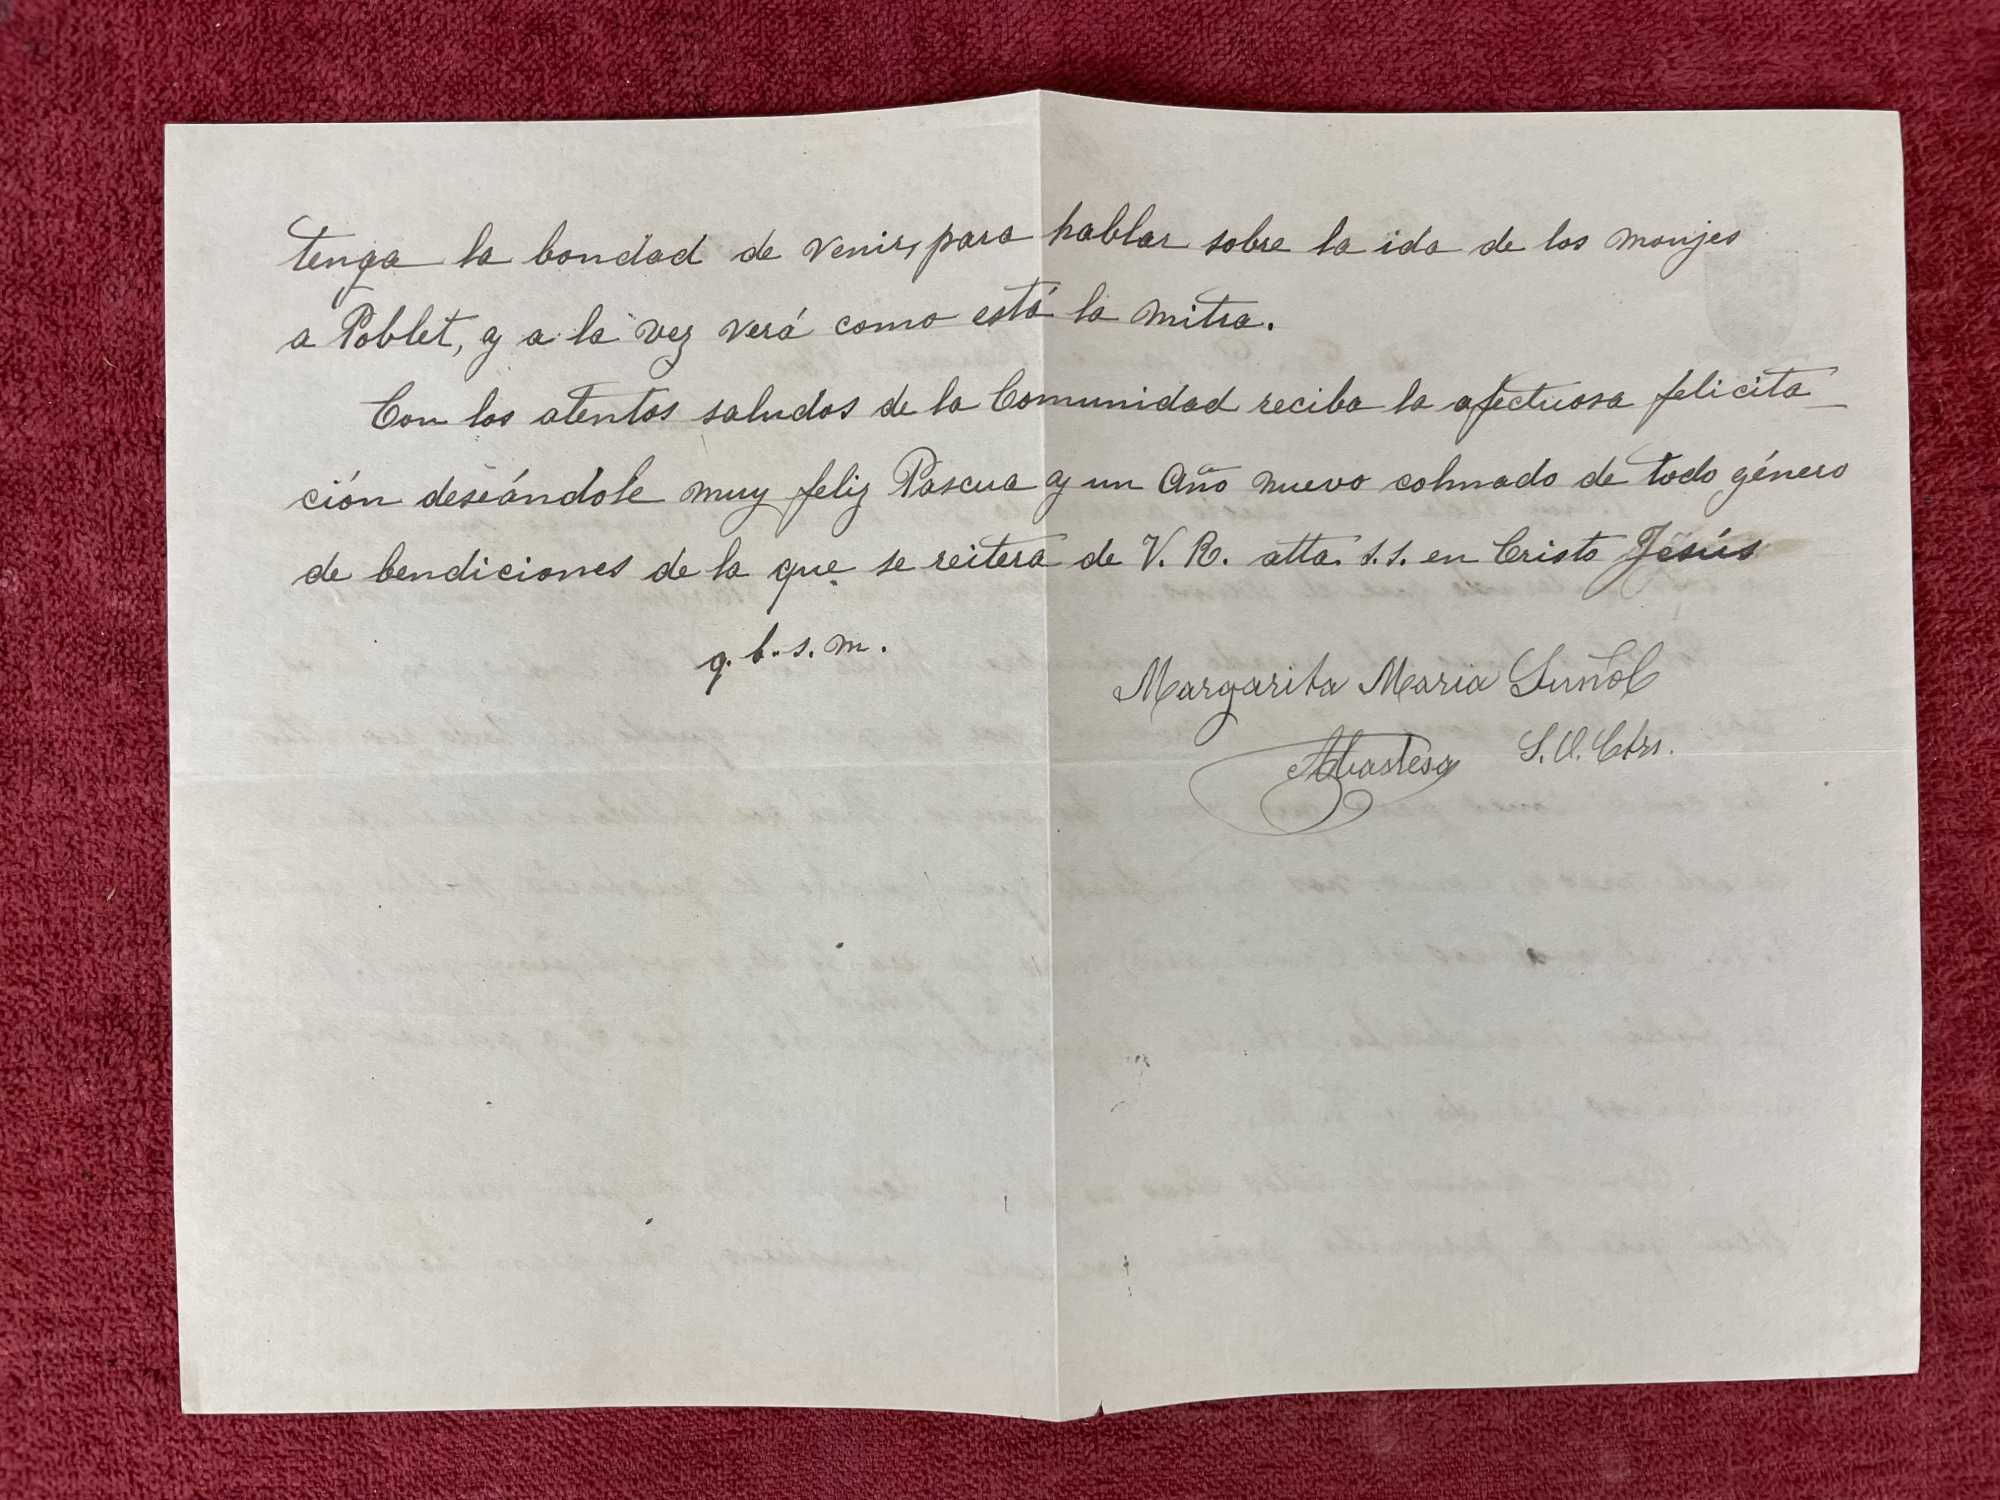 tenga la bondad de venir, para hablar sobre la ida de los monjes
a Poblet, y a la vez verá como está la mitra.
Con los atentos saludos de la Comunidad reciba la afectuosa felicita_
ción deseándole muy feliz Pascua y un Año nuevo colmado de todo género
de bendiciones de la que se reitera de V. R. atta. s.s. en Cristo Jesús
q. b. s. m.
Margarita Maria Suñol
Abadesa S. O. Ctrs.